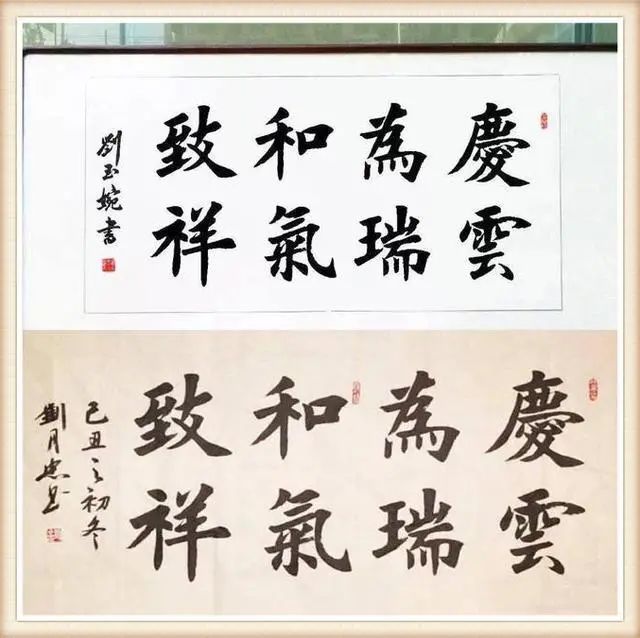 慶雲
為瑞
和氣
致祥
劉玉婉書
慶雲
為瑞
和氣
致祥
己丑之初冬
劉月忠书